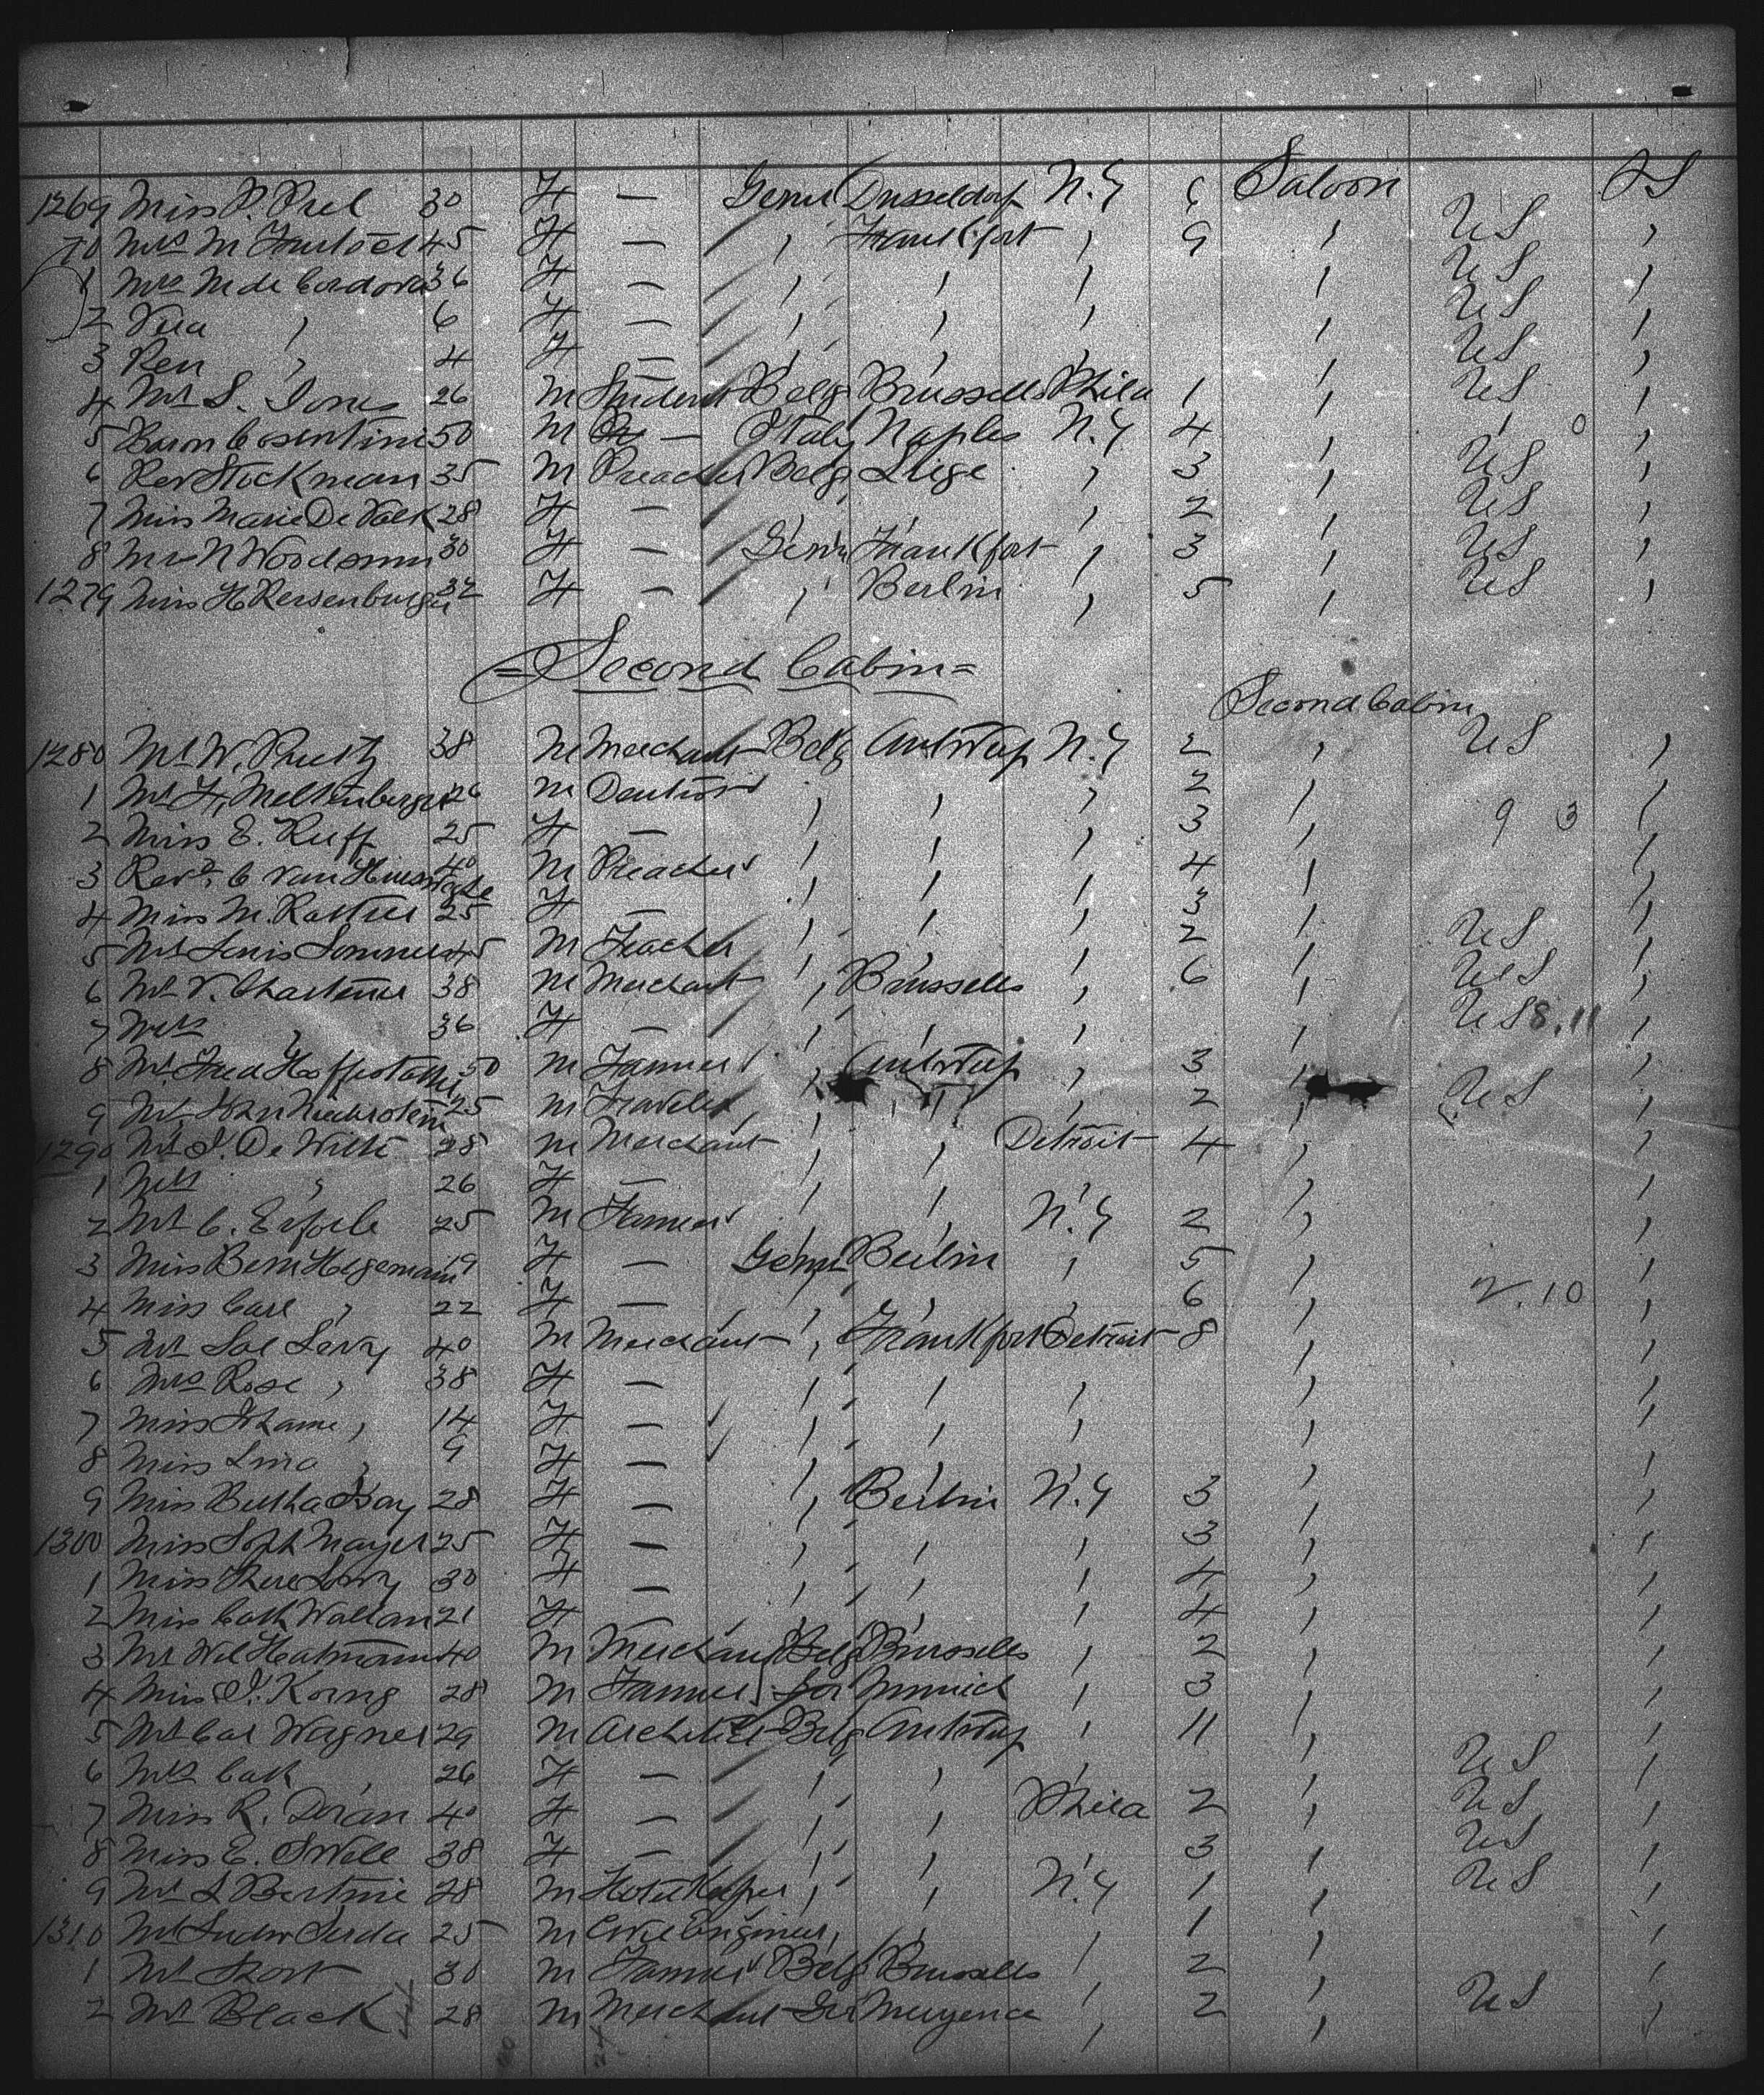 1269 Miss P. Prel 30 F — Germ Dusseldorf N.Y 6 Saloon US
70 Mrs M 45 F — , Frankfort , 9 , US ,
1 Mrs M de Cordova 36 F — , , , , US ,
2 Vera , 6 F — , , , , US ,
3 Ren , 4 F — , , , , US ,
4 Mr S. Jones 26 M Student Belg Brussells Phila 1 , US ,
5 Baron Cosentini 50 M — Italy Naples N.Y 4 , , 0 ,
6 Rev Stockman 35 M Preacher Belg Liege , 3 , US ,
7 Miss Marie De Valk 28 F — , , , 2 , US ,
8 Mrs N 30 F — Germ Frankfort , 3 , US ,
1279 Miss H 32 F — , Berlin , 5 , US ,
= Second Cabin =
Second Cabin
1280 Mr W. 38 M Merchant Belg Antwerp N.Y 2 , US ,
1 Mr F. Meltenberger 26 M Dentist , , , 2 , ,
2 Miss E. Ruff 25 F — , , , 3 , 9 3 ,
3 Revd. C van 40 M Preacher , , , 4 , ,
4 Miss M. 25 F — , , , 3 , ,
5 Mr Louis Sommers 45 M Teacher , , , 2 , US ,
6 Mr V. 38 M Merchant , Brussells , 6 , US ,
7 Mrs , 36 F — , , , , US 8.11 ,
8 Mr Fred 50 M Farmer , Antwerp , 3 , ,
9 Mr John 25 M Traveler , , , 2 , US ,
1290 Mr J. De Witte 28 M Merchant , , Detroit 4 , ,
1 Mrs , 26 F — , , , , ,
2 Mr C. 25 M Farmer , , N.Y 2 , ,
3 Miss Bern Hegemann 19 F — Germ Berlin , 5 , ,
4 Miss Carl , 22 F — , , , 6 , 2.10 ,
5 Mr Sol Levy 40 M Merchant , Frankfort Detroit 8 , ,
6 Mrs Rose , 38 F — , , , , ,
7 Miss , 14 F — , , , , ,
8 Miss Lina , 9 F — , , , , ,
9 Miss Bertha Kay 28 F — , Berlin N.Y 3 , ,
1300 Miss Soph Mayer 25 F — , , , 3 , ,
1 Miss There Levy 30 F — , , , 4 , ,
2 Miss Cath Wallan 21 F — , , , 4 , ,
3 Mr Wil 40 M Merchant Belg Brussells , 2 , ,
4 Miss J. Koing 28 M Farmer Ger Munich , 3 , ,
5 Mr Carl Wagner 29 M Architect Belg Antwerp , 11 , ,
6 Mrs Cath , 26 F — , , , , US ,
7 Miss R. Doran 40 F — , , Phila 2 , US ,
8 Miss E. 38 F — , , , 3 , US ,
9 Mr L Bertine 28 M Hotel Keeper , , N.Y 1 , US ,
1310 Mr Ludw Serda 25 M Civil Engineer , , , 1 , ,
1 Mr 30 M Farmer Belg Brussells , 2 , ,
2 Mr Black 28 M Merchant Ger Mayence , 2 , US ,